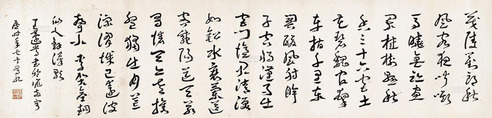 茂陵劉郎秋
風客夜聞
馬嘶曉無跡畫
欄桂樹懸秋
香三十六宮土
花碧魏官牽
車指千里東
關酸風射眸
子空將漢月出
宮門憶君清淚
如鉛水衰蘭送
客咸陽道天若
有情天亦老攜
盤獨出月荒
涼渭城已遠波
聲小 李賀金銅
仙人辭漢歌